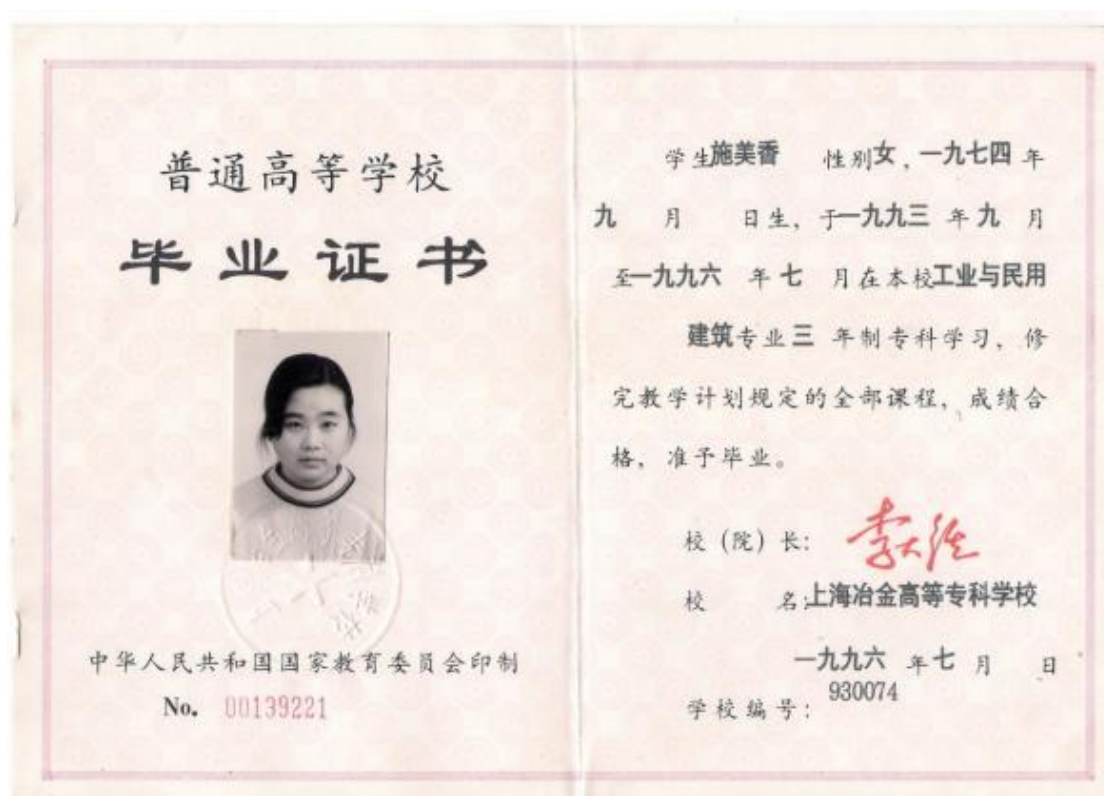 普通高等学校
毕业证书
中华人民共和国国家教育委员会印制
No. 00139221
学生施美香 性别女，一九七四年
九 月 日生，于一九九三年九月
至一九九六年七月在本校工业与民用
建筑专业三年制专科学习，修
完教学计划规定的全部课程，成绩合
格，准予毕业。
校（院）长：
校 名：上海冶金高等专科学校
一九九六年七月 日
学校编号：930074